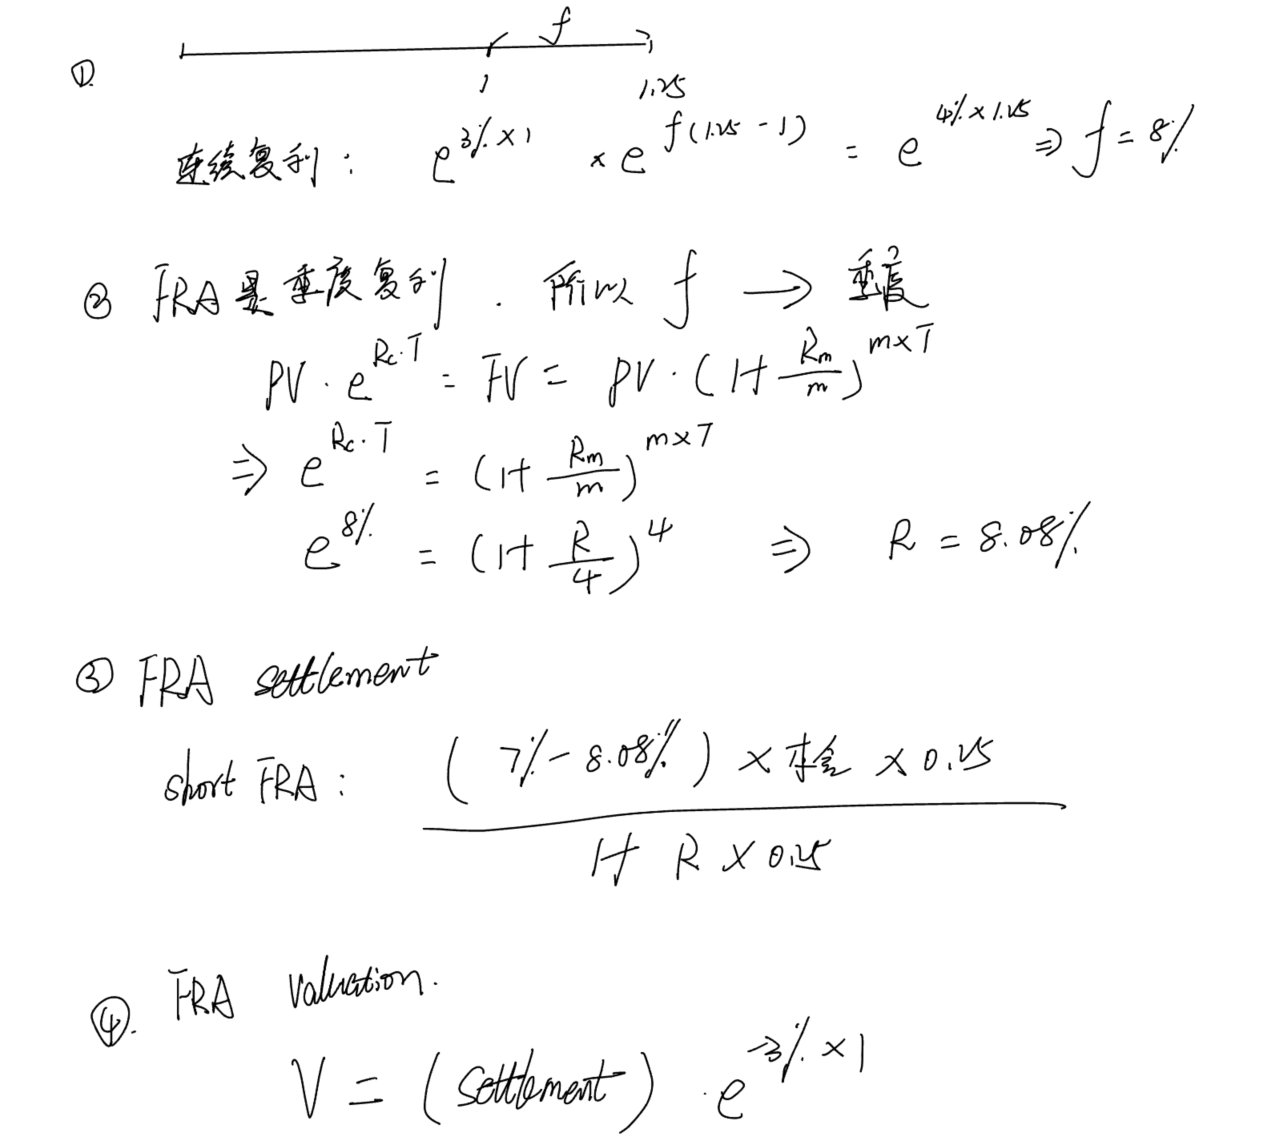 ① f
1 1.25
连续复利： e^{3%×1} × e^{f(1.25-1)} = e^{4%×1.25} ⇒ f = 8%
② FRA是季度复利. 所以 f → 季度
PV · e^{Rc·T} = FV = PV · (1+ Rm/m)^{m×T}
⇒ e^{Rc·T} = (1+ Rm/m)^{m×T}
e^{8%} = (1+ R/4)^4 ⇒ R = 8.08%
③ FRA settlement
short FRA: (7%-8.08%) × 本金 × 0.25
1+ R × 0.25
④. FRA Valuation.
V = (settlement) · e^{-3%×1}